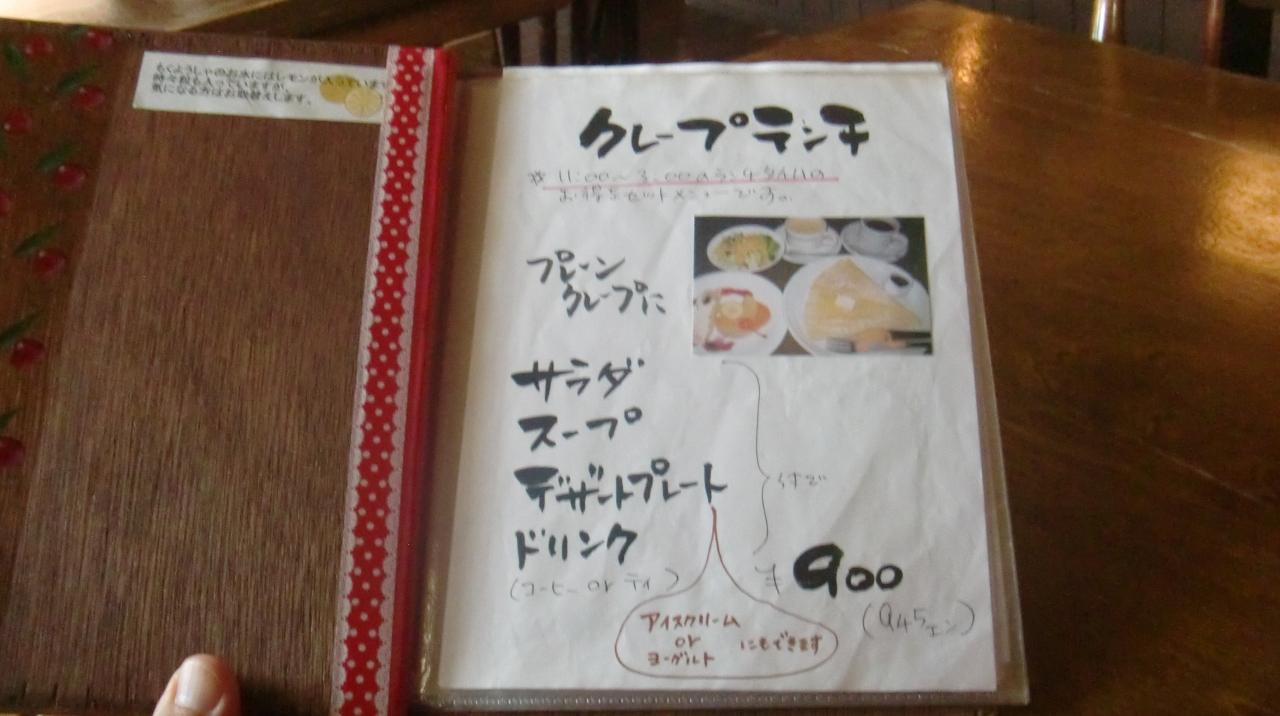 もくようしゃのお水にはレモンが入っています
時々粒も入っていますが、
気になる方はお取替えします。
クレープランチ
※ 11:00〜3:00のランチタイムの
お得なセットメニューです。
プレーン
クレープに
サラダ
スープ
デザートプレート
ドリンク
(コーヒー or ティ)
付で
¥900
(945エン)
アイスクリーム
or
ヨーグルト
にもできます